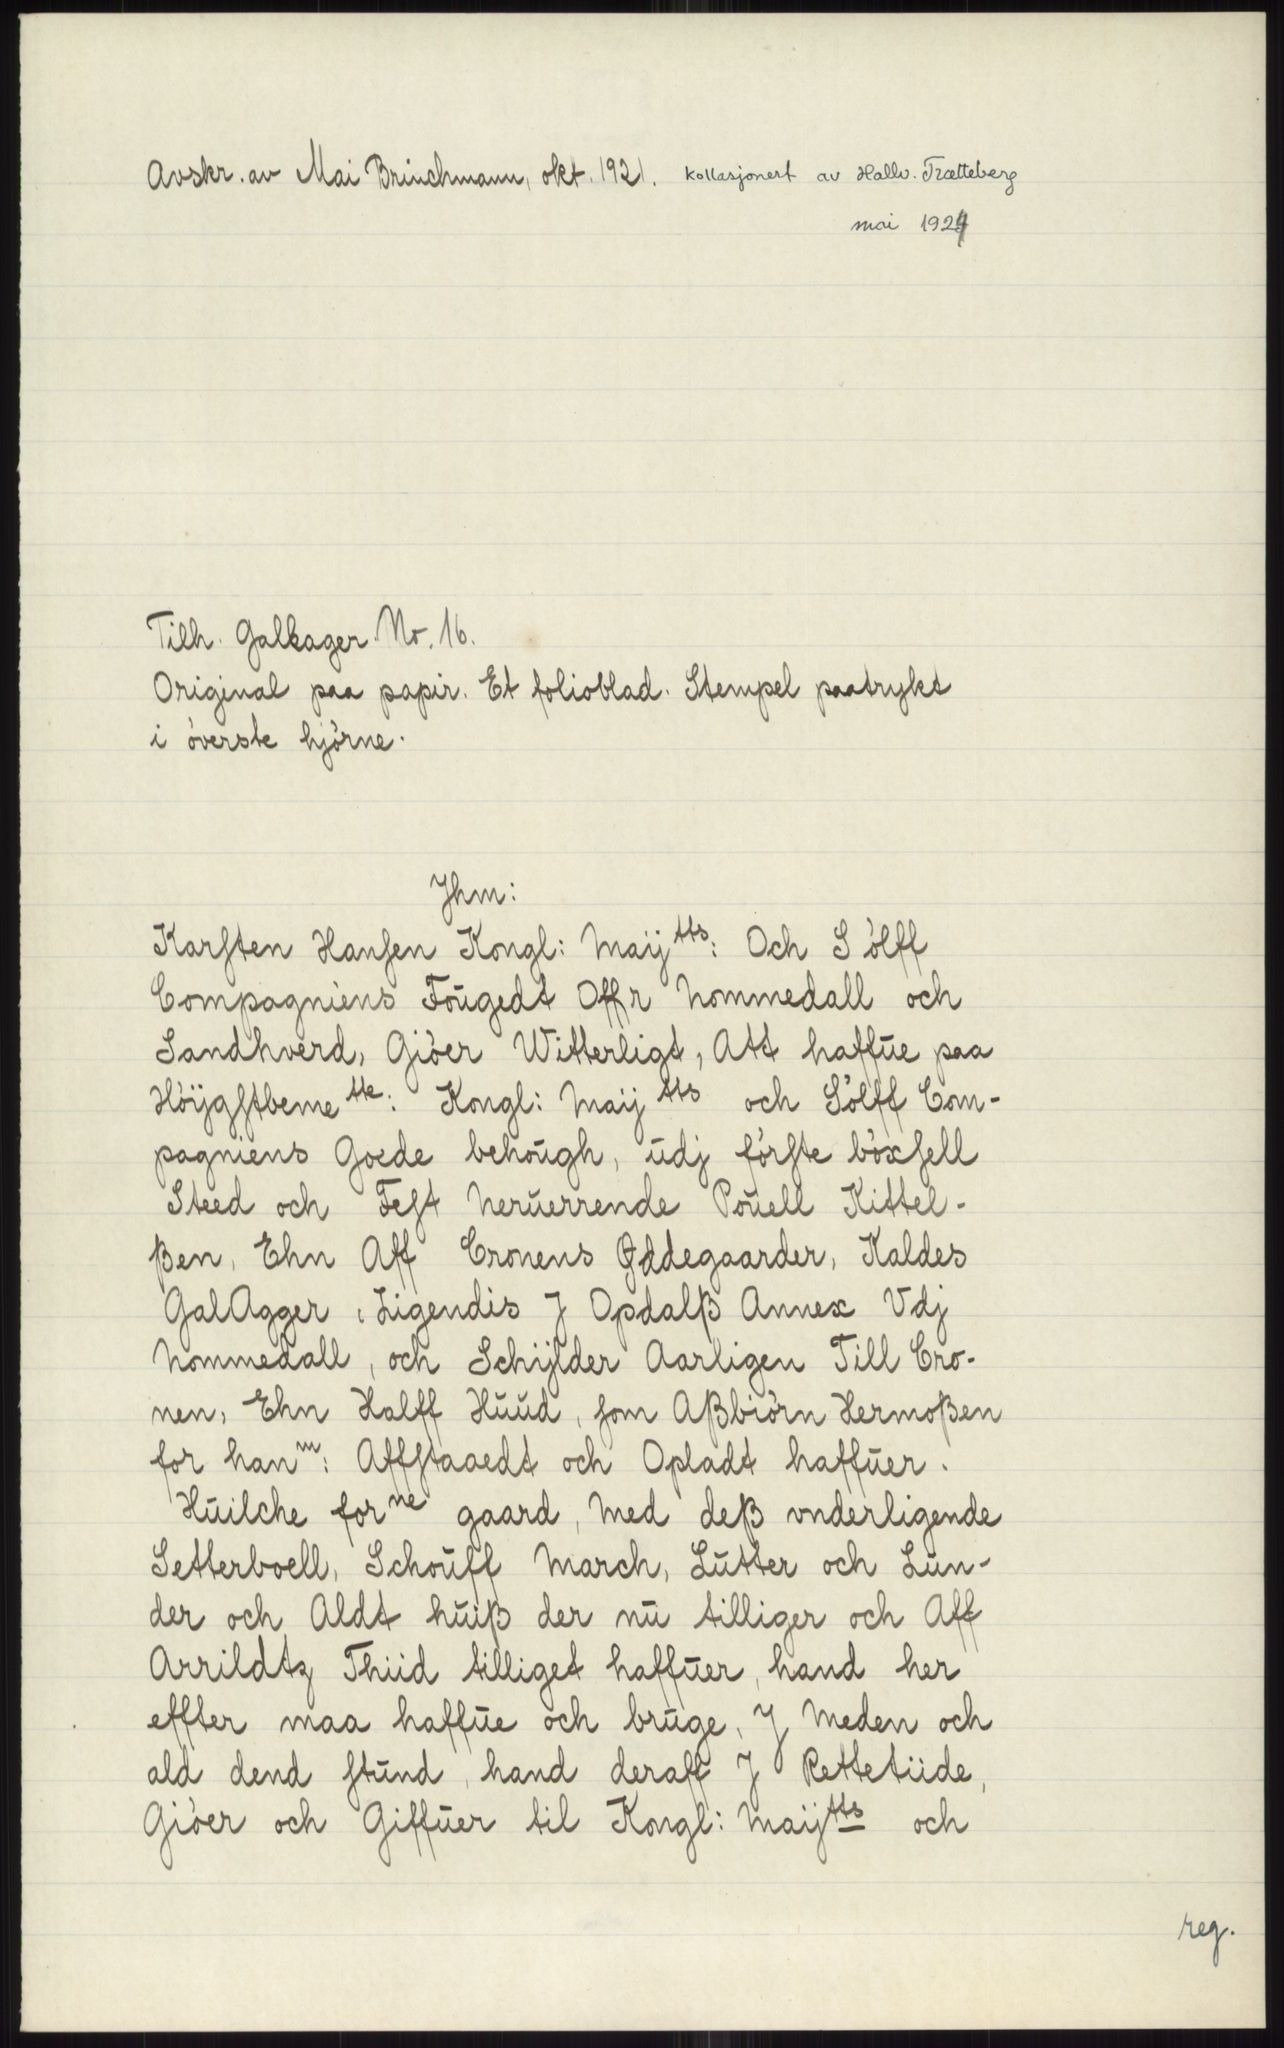 Avskr. av Mai Brinchmann, okt. 1921. Kollasjonert av Hallv. Trætteberg
mai 1924
Tilh. Galkager No. 16.
Original paa papir. Et folioblad. Stempel paatrykt
i överste hjörne.
Jhm:
Karſten Hanſen Kongl: Maijtts: Och Sölff
Compagniens Foŭgedt Offr Nommedall och
Sandhverd, Giöer Witterligt, Att haffŭe paa
Höÿgſtbemette: Kongl: Maijtts och Sölff Com-
pagniens Goede behoŭgh, ŭdj förſte böxſell
Steed och Feſt Nerŭerrende Poŭell Kittel-
ßen, Ehn Aff Cronens Øddegaarder, Kaldes
GalAgger, Ligendis J Opdalß Annex Vdj
Nommedall, och Schijlder Aarligen Till Cro-
nen, Ehn Halff Hŭŭd, ſom Aßbiörn Hermoßen
for hanm: Affſtaaedt och Opladt haffŭer.
Hŭilche forne gaard, Med deß vnderligende
Setterboell, Schoŭff March, Lŭtter och Lŭn-
der och Aldt hŭiß der nŭ tilliger och Aff
Arrildtz Thiid tilliget haffŭer, hand her
effter maa haffŭe och brŭge, J Meden och
ald dend ſtŭnd, hand deraff J Rettetiide,
Giöer och Giffŭer til Kongl: Maijtts och
reg.